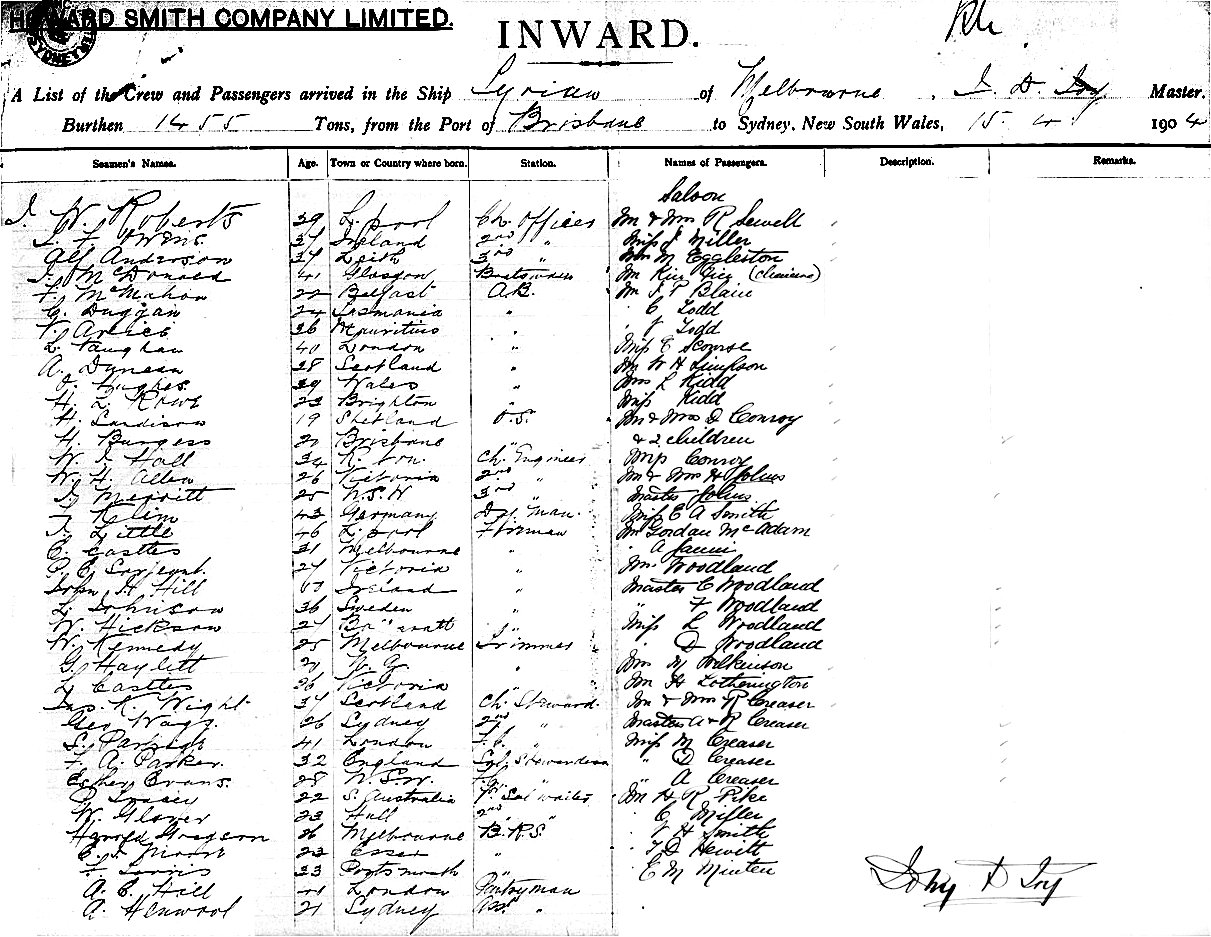 HOWARD SMITH COMPANY LIMITED.
INWARD.
A List of the Crew and Passengers arrived in the Ship Syrian of Melbourne, J. D. Joy Master.
Burthen 1455 Tons, from the Port of Brisbane to Sydney, New South Wales, 15 4 1904
Seamen's Names. Age. Town or Country where born. Station. Names of Passengers. Description. Remarks.
Saloon
J. W. Roberts 39 L. pool Ch. Officer Mr & Mrs R Sewell
Owens 37 Ireland 2nd " Miss J Miller
Alf Anderson 37 Leith 3rd " M Eggleston
McDonald 41 Glasgow Boatswain Mr (Chinese)
F. McMahon 22 Belfast A.B. Mr J P Blair
C. Duggan 24 Tasmania " C Todd
36 Mauritius " J Todd
L. Vaughan 40 London " Miss E Scourse
A. Duncan 28 Scotland " Mr W H Simpson
O. Hughes 39 Wales " Mrs L Kidd
H. L. Rowe 23 Brighton " Miss Kidd
H. 19 Shetland O.S. Mr & Mrs D Conroy
H. Burgess 21 Brisbane & 2 children
W. J. Hall 34 Ch. Engineer Miss Conroy
W. H. Allen 26 Victoria 2nd " Mr & Mrs H
J. Merritt 25 N.S.W 3rd " Master
Klein 43 Germany Dky man. Miss E A Smith
J. Little 46 L. pool Fireman Mr Gordan McAdam
C. Castles 31 Melbourne " A
P. C. Sargeant. 27 Victoria Mrs Woodland
John H. Hill 63 Ireland " Master C Woodland
L. Johnson 36 Sweden " " F Woodland
W. Hickson 27 " Miss L Woodland
W. Kennedy 25 Melbourne Trimmer " D Woodland
G. Haylett 21 " Mrs M Wilkinson
L. Castles 26 Victoria " Mr H Lotherington
Jas. R. Wight. 37 Scotland Ch. Steward. Mr & Mrs R Creaser
Geo. Wagg. 26 Sydney 2nd " Masters A & R Creaser
S. 41 London F.C. " Miss M Creaser
F. A. Parker. 32 England Stewardess " D Creaser
Esther Evans. 28 N.S.W. " A Creaser
22 S. Australia Sal waiter Mr H R Pike
W. Glover 23 Hull 2nd " C Miller
Harold 26 Melbourne B.R.S. V H Smith
23 Essex " T D Hewitt
33 Portsmouth " E M Minten
A. C. Hill 41 London Pantryman
A. Henwool 21 Sydney Ass. "
John D Joy